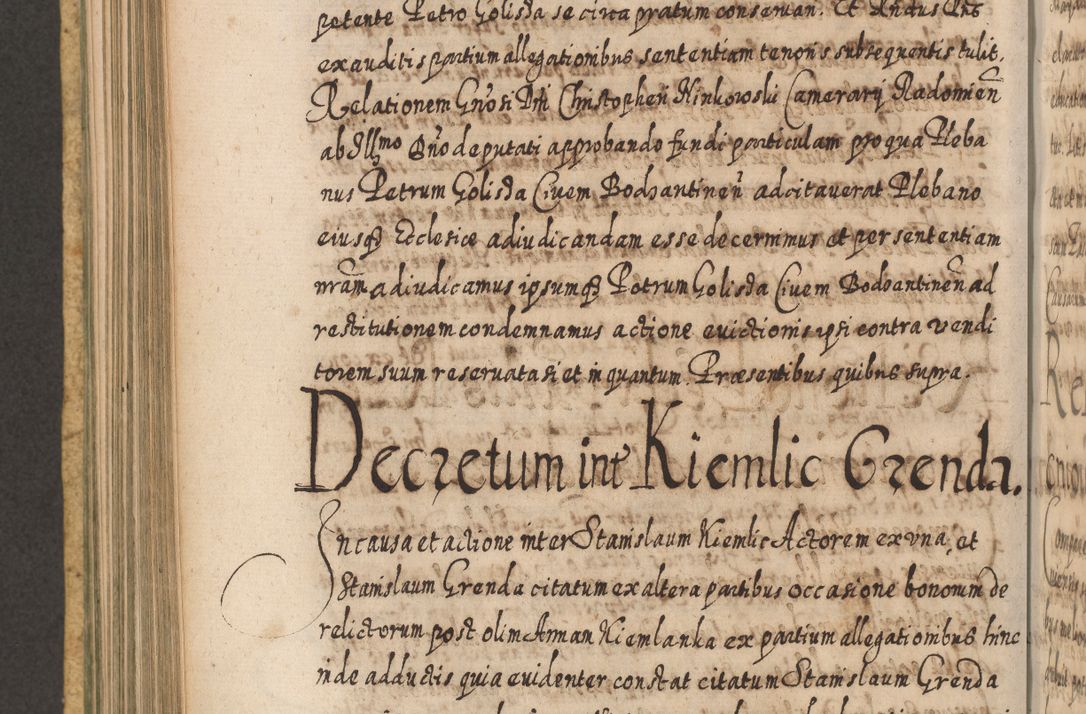 petente Petro Golisda se circa pratum conseruari. Et Rndus Dns
exauditis partium allegationibus sententiam tenoris subsequentis tulit.
Relationem Gnosi Dni Christopheri Ninkowski Camerarij Radomien
ab Illmo Dno deputati approbando fundi particulam pro qua Pleba
nus Petrum Golisda Ciuem Bodzantinen adcitauerat Plebano
eiusq Ecclesiæ adiudicandam esse decernimus et per sententiam
nram adiudicamus ipsumq Petrum Golisda Ciuem Bodzantinen ad
restitutionem condemnamus actione euictionis ipsi contra vendi
torem suum reseruata si et in quantum. Præsentibus quibus supra.
Decretum int Kiemlic Grenda.
In causa et actione inter Stanislaum Kiemlic Actorem ex vna, et
Stanislaum Grenda citatum ex altera partibus occasione bonorum de
relictorum post olim Annam Kiemlanka ex partium allegationibus hinc
inde adductis quia euidenter constat citatum Stanislaum Grenda